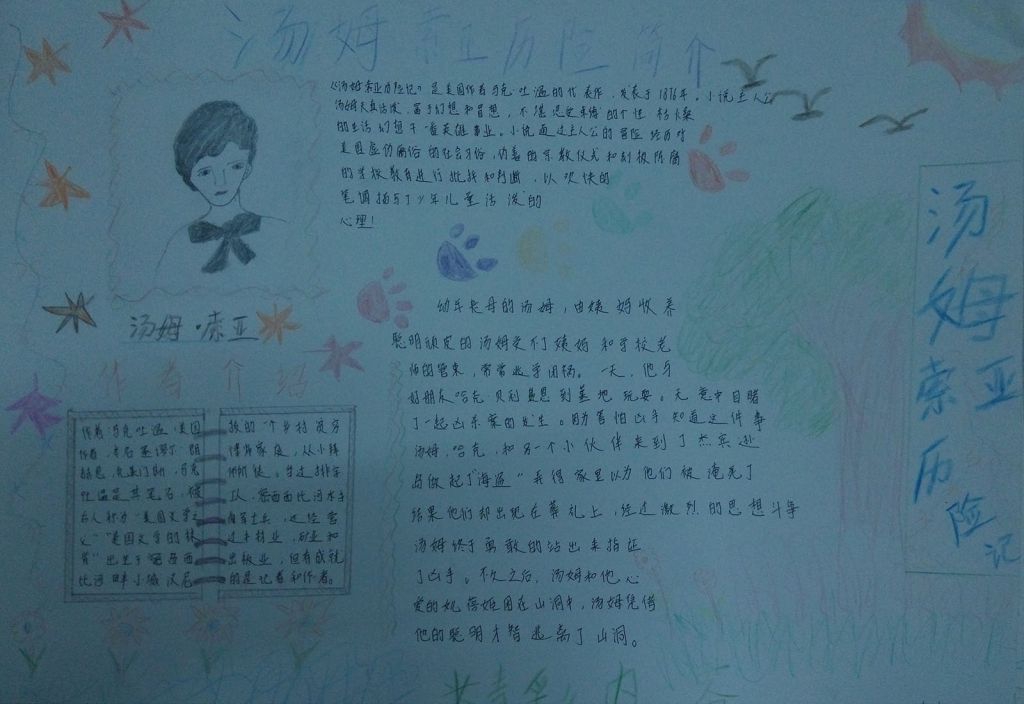 汤姆索亚历险简介
《汤姆索亚历险记》是美国作者马克·吐温的代表作,发表于1876年。小说主人公
汤姆天真活泼、富于幻想和冒险,不堪忍受束缚的个性枯燥
的生活幻想干一番英雄事业。小说通过主人公的冒险经历对
美国虚伪庸俗的社会习俗,伪善的宗教仪式和刻板陈腐
的学校教育进行批判和判断,以欢快的
笔调描写了少年儿童活泼的
心理!
汤姆·索亚
作者介绍
作者马克吐温,美国
作者,本名塞缪尔·朗
赫恩,克莱门斯,马克
吐温是其笔名,被
后人称为"美国文学之
父""美国文学的林
肯"出生于密西西
比河畔小城汉尼
拔的一个乡村贫穷
律师家庭,从小拜
师学徒。当过排字
工人,密西西比河水手
南军士兵,还经营
过木材业,矿业和
出版业,但有成就
的是记者和作者。
幼年丧母的汤姆,由姨妈收养
聪明顽皮的汤姆受不了姨妈和学校老
师的管束,常常逃学闯祸。一天,他与
好朋友哈克贝利·费恩到墓地玩耍。无意中目睹
了一起凶杀案的发生。因害怕凶手知道这件事
汤姆,哈克,和另一个小伙伴来到了杰克逊
岛做起了"海盗"弄得家里以为他们被淹死了
结果他们却出现在葬礼上,经过激烈的思想斗争
汤姆终于勇敢的站出来指证
了凶手。不久之后,汤姆和他心
爱的姑娘困在山洞中,汤姆凭借
他的聪明才智逃离了山洞。
汤姆索亚历险记
内容